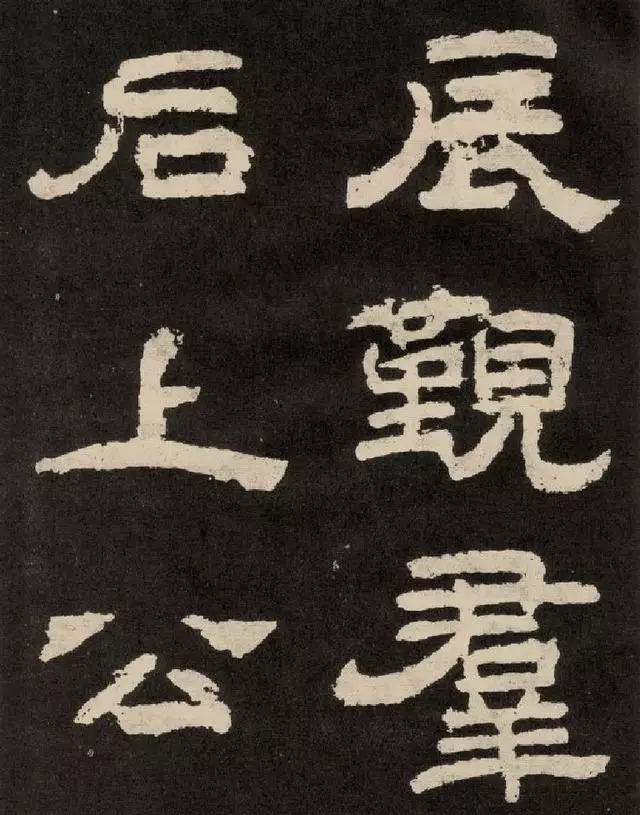 辰覲羣
后上公